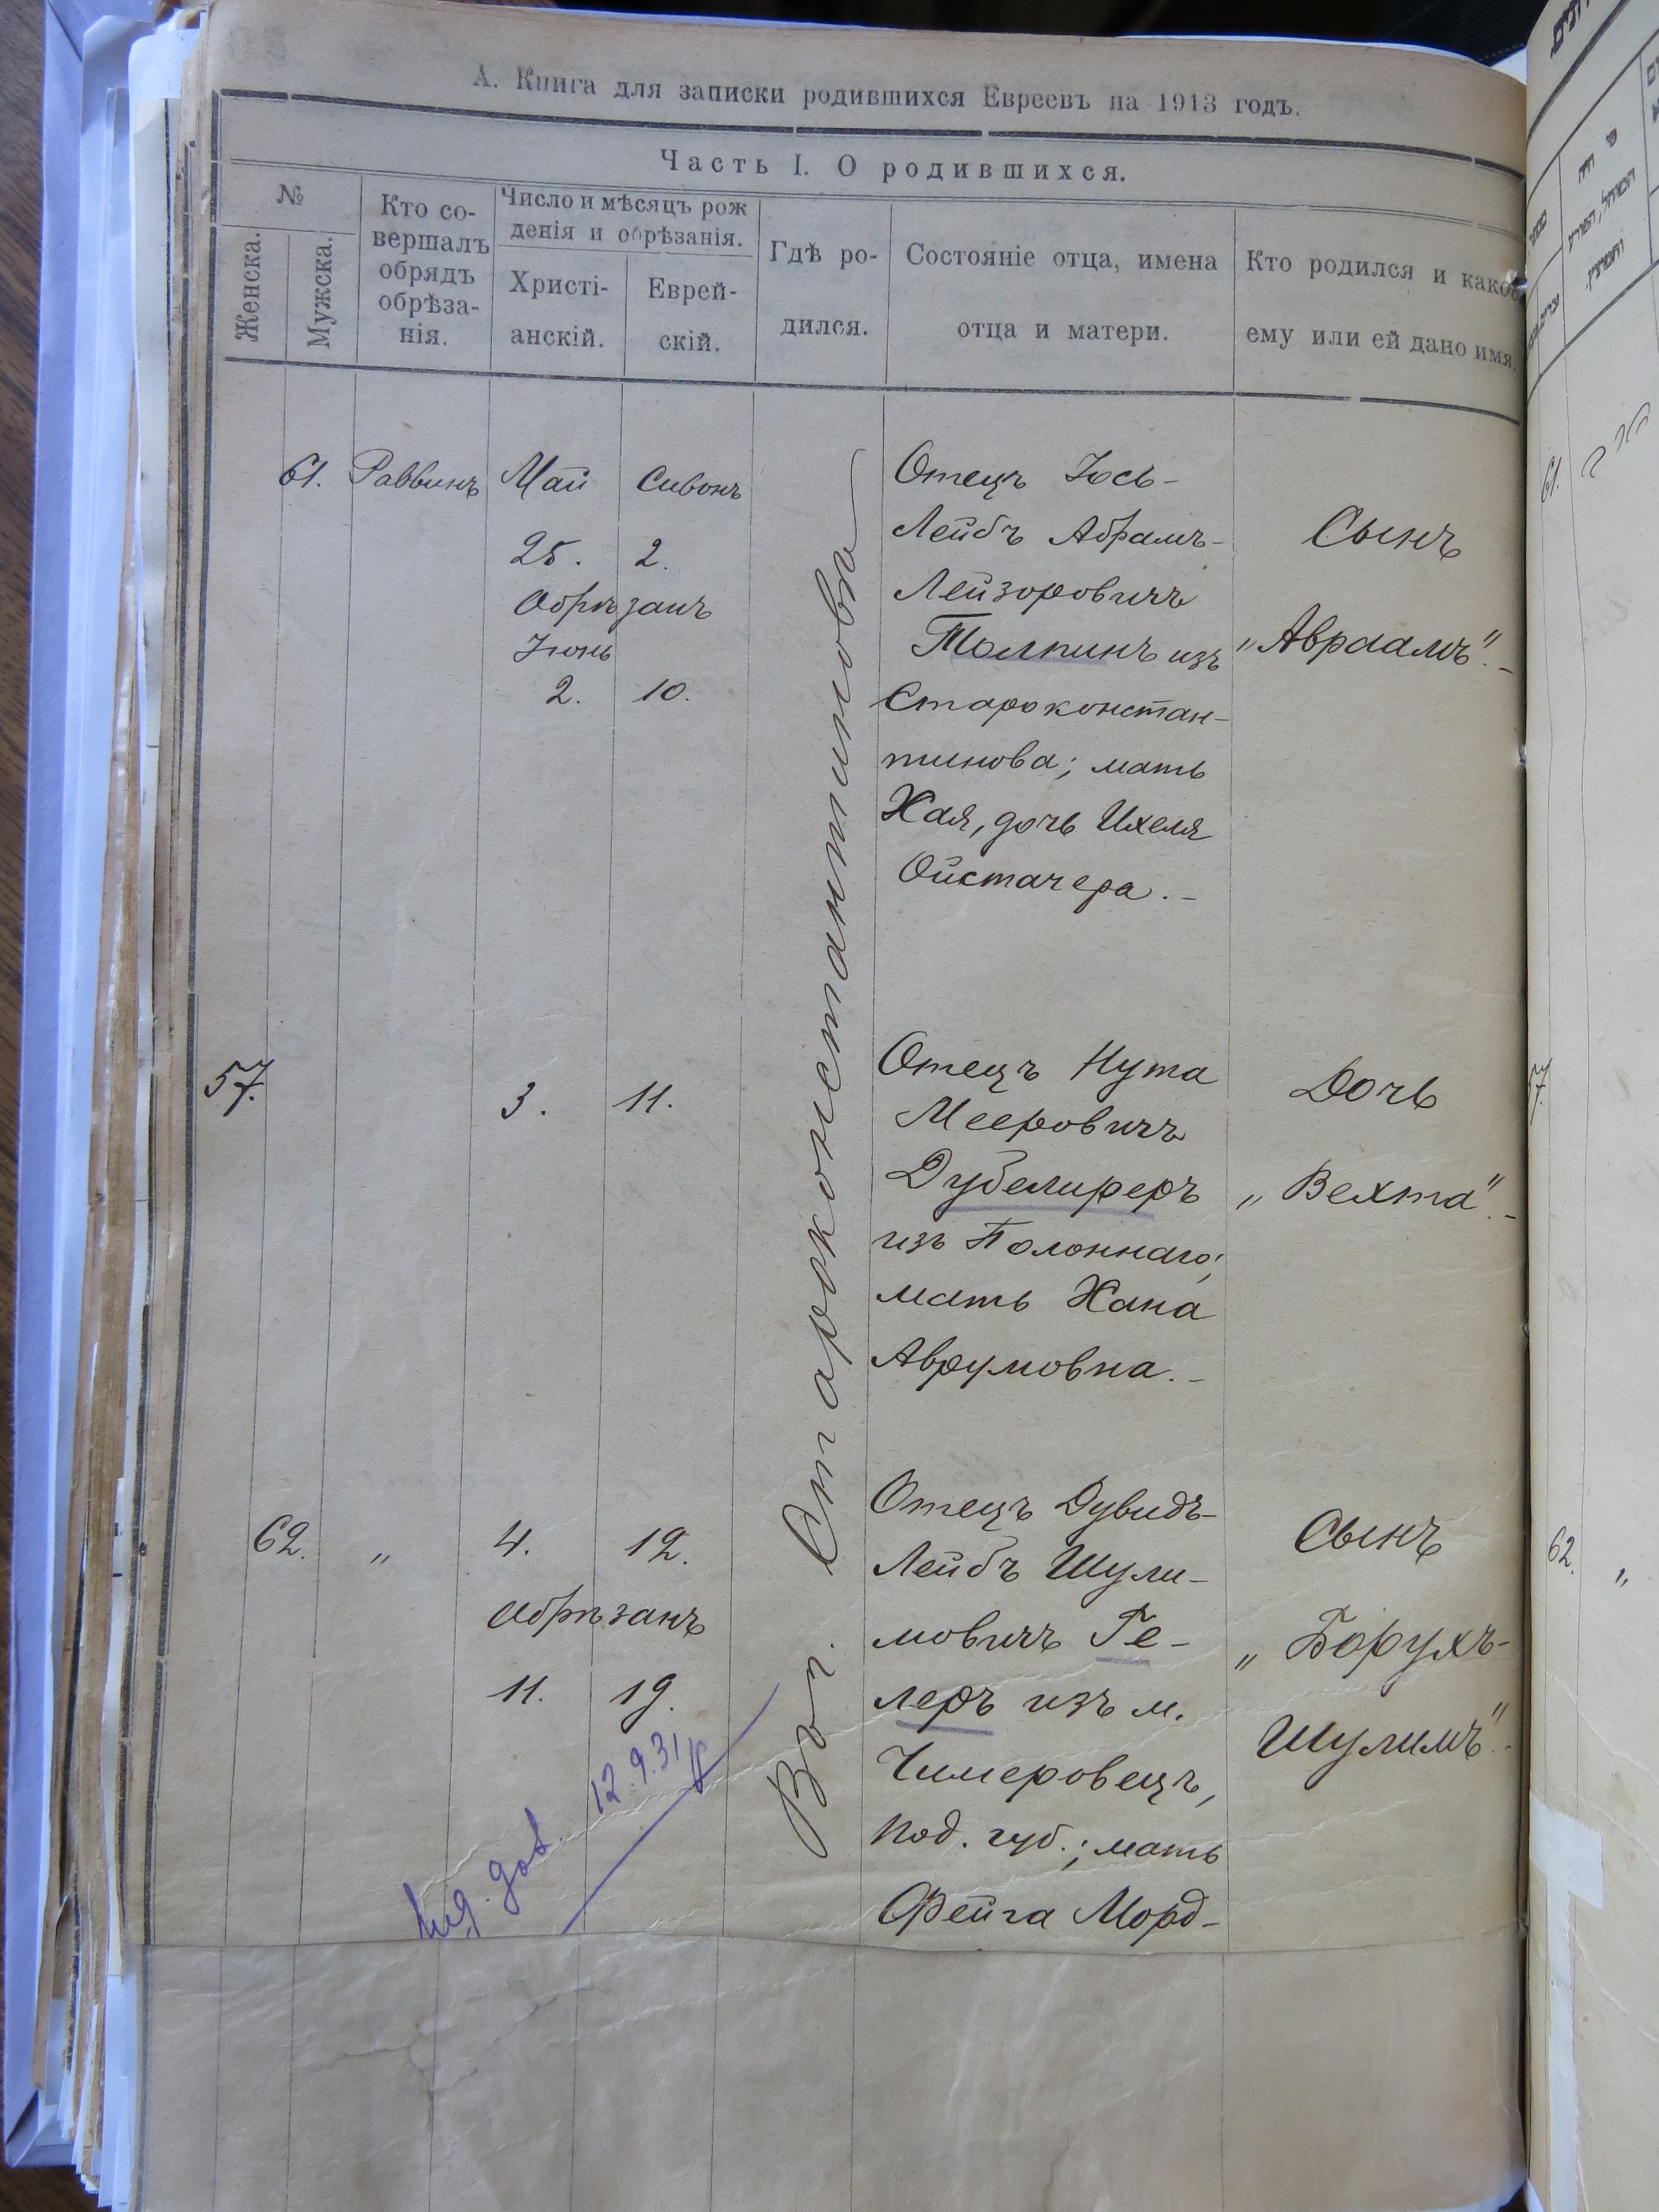 А. Книга для записки родившихся Евреевъ на 1913 годъ.
Часть I. О родившихся.
№
Женска.
Мужска.
Кто со-
вершалъ
обрядъ
обрѣза-
нія.
Число и мѣсяцъ рож
денія и обрѣзанія.
Христі-
анскій.
Еврей-
скій.
Гдѣ ро-
дился.
Состояніе отца, имена
отца и матери.
Кто родился и какое
ему или ей дано имя
61.
Раввинъ
Май
Сивонъ
25.
2.
Обрѣзанъ
Іюнь
2.
10.
Вол. Староконстантиновъ
Отецъ Іось-
Лейбъ Абрамъ-
Лейзоровичъ
Толпинъ изъ
Староконстан-
тинова; мать
Хая, дочь Ихеля
Ойстачера.-
Сынъ
„Авраамъ".-
57.
3.
11.
Отецъ Нута
Мееровичъ
Дубелиреръ
изъ Полоннаго;
мать Хана
Аврумовна.-
Дочь
„Вехта".-
62.
„
4.
12.
Обрѣзанъ
11.
19.
12.9.31
Отецъ Дувидъ-
Лейбъ Шули-
мовичъ Ге-
леръ изъ м.
Чимеровецъ,
Под. губ.; мать
Фейга Морд-
Сынъ
„Борухъ-
Шулимъ".-
61.
57.
62.
„